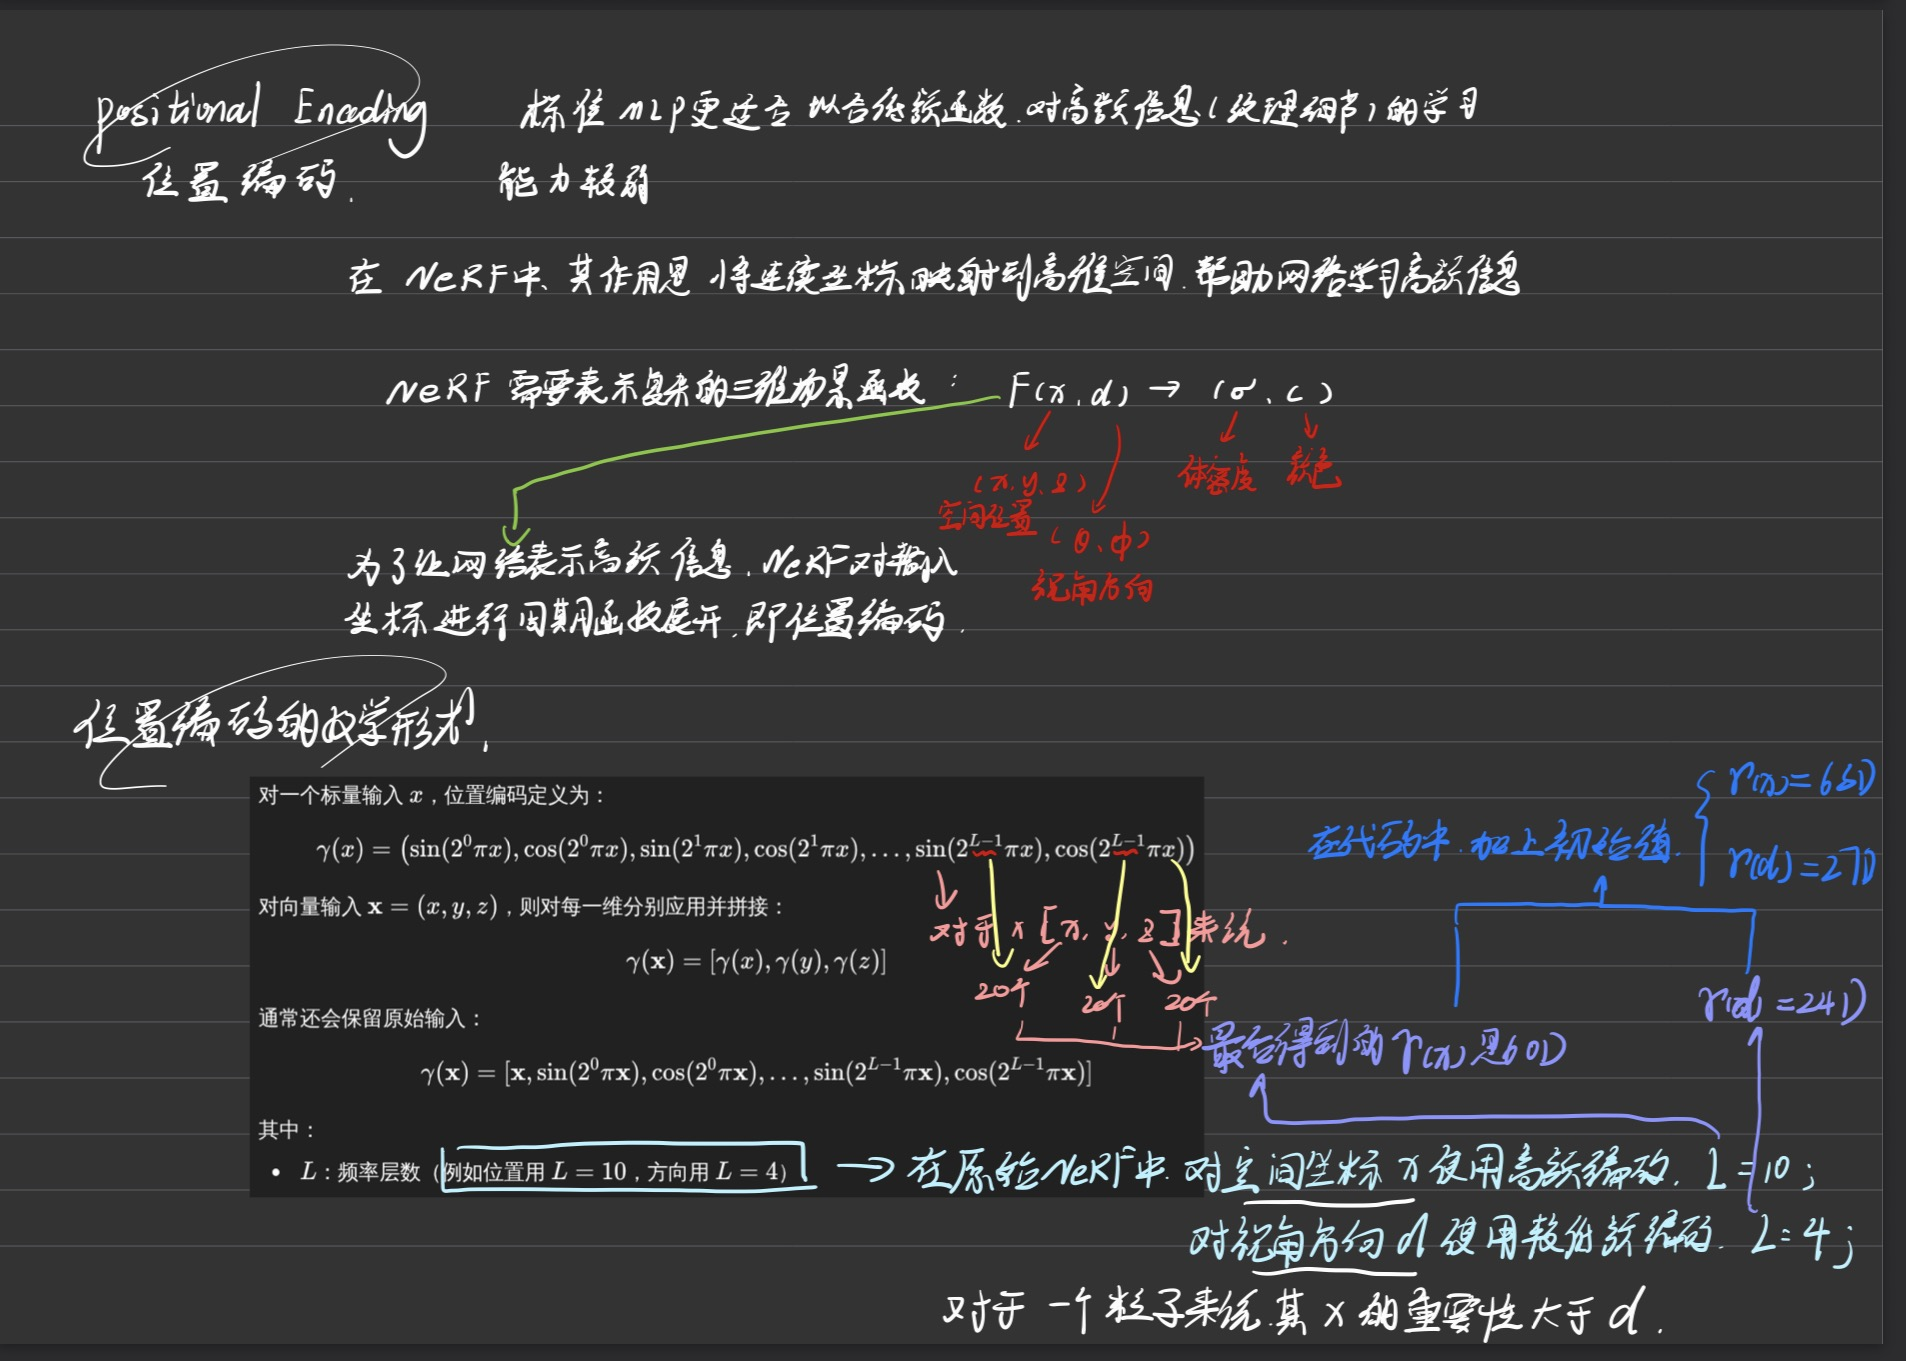 Positional Encoding
位置编码.
标准MLP更适合拟合低频函数.对高频信息(纹理细节)的学习
能力较弱
在NeRF中、其作用是将连续坐标映射到高维空间.帮助网络学习高频信息
NeRF需要表示复杂的三维场景函数: F(x,d) → (σ、c)
(x.y.z)
空间位置
(θ、φ)
视角方向
体密度
颜色
为了让网络表示高频信息.NeRF对输入
坐标进行周期函数展开.即位置编码.
位置编码的数学形式.
对一个标量输入 x，位置编码定义为：
γ(x) = (sin(2⁰πx), cos(2⁰πx), sin(2¹πx), cos(2¹πx), ..., sin(2^{L−1}πx), cos(2^{L−1}πx))
对向量输入 𝐱 = (x, y, z)，则对每一维分别应用并拼接：
γ(𝐱) = [γ(x), γ(y), γ(z)]
通常还会保留原始输入：
γ(𝐱) = [𝐱, sin(2⁰π𝐱), cos(2⁰π𝐱), ..., sin(2^{L−1}π𝐱), cos(2^{L−1}π𝐱)]
其中：
• L：频率层数（例如位置用 L = 10，方向用 L = 4）
对于x[x,y,z]来说.
20个 20个 20个
最后得到的γ(x)是60D
γ(d)=24D
在代码中.加上初始值.
γ(x)=63D
γ(d)=27D
→ 在原始NeRF中.对空间坐标x使用高频编码.L=10;
对视角方向d使用较低频编码.L=4;
对于一个粒子来说.其x的重要性大于d.